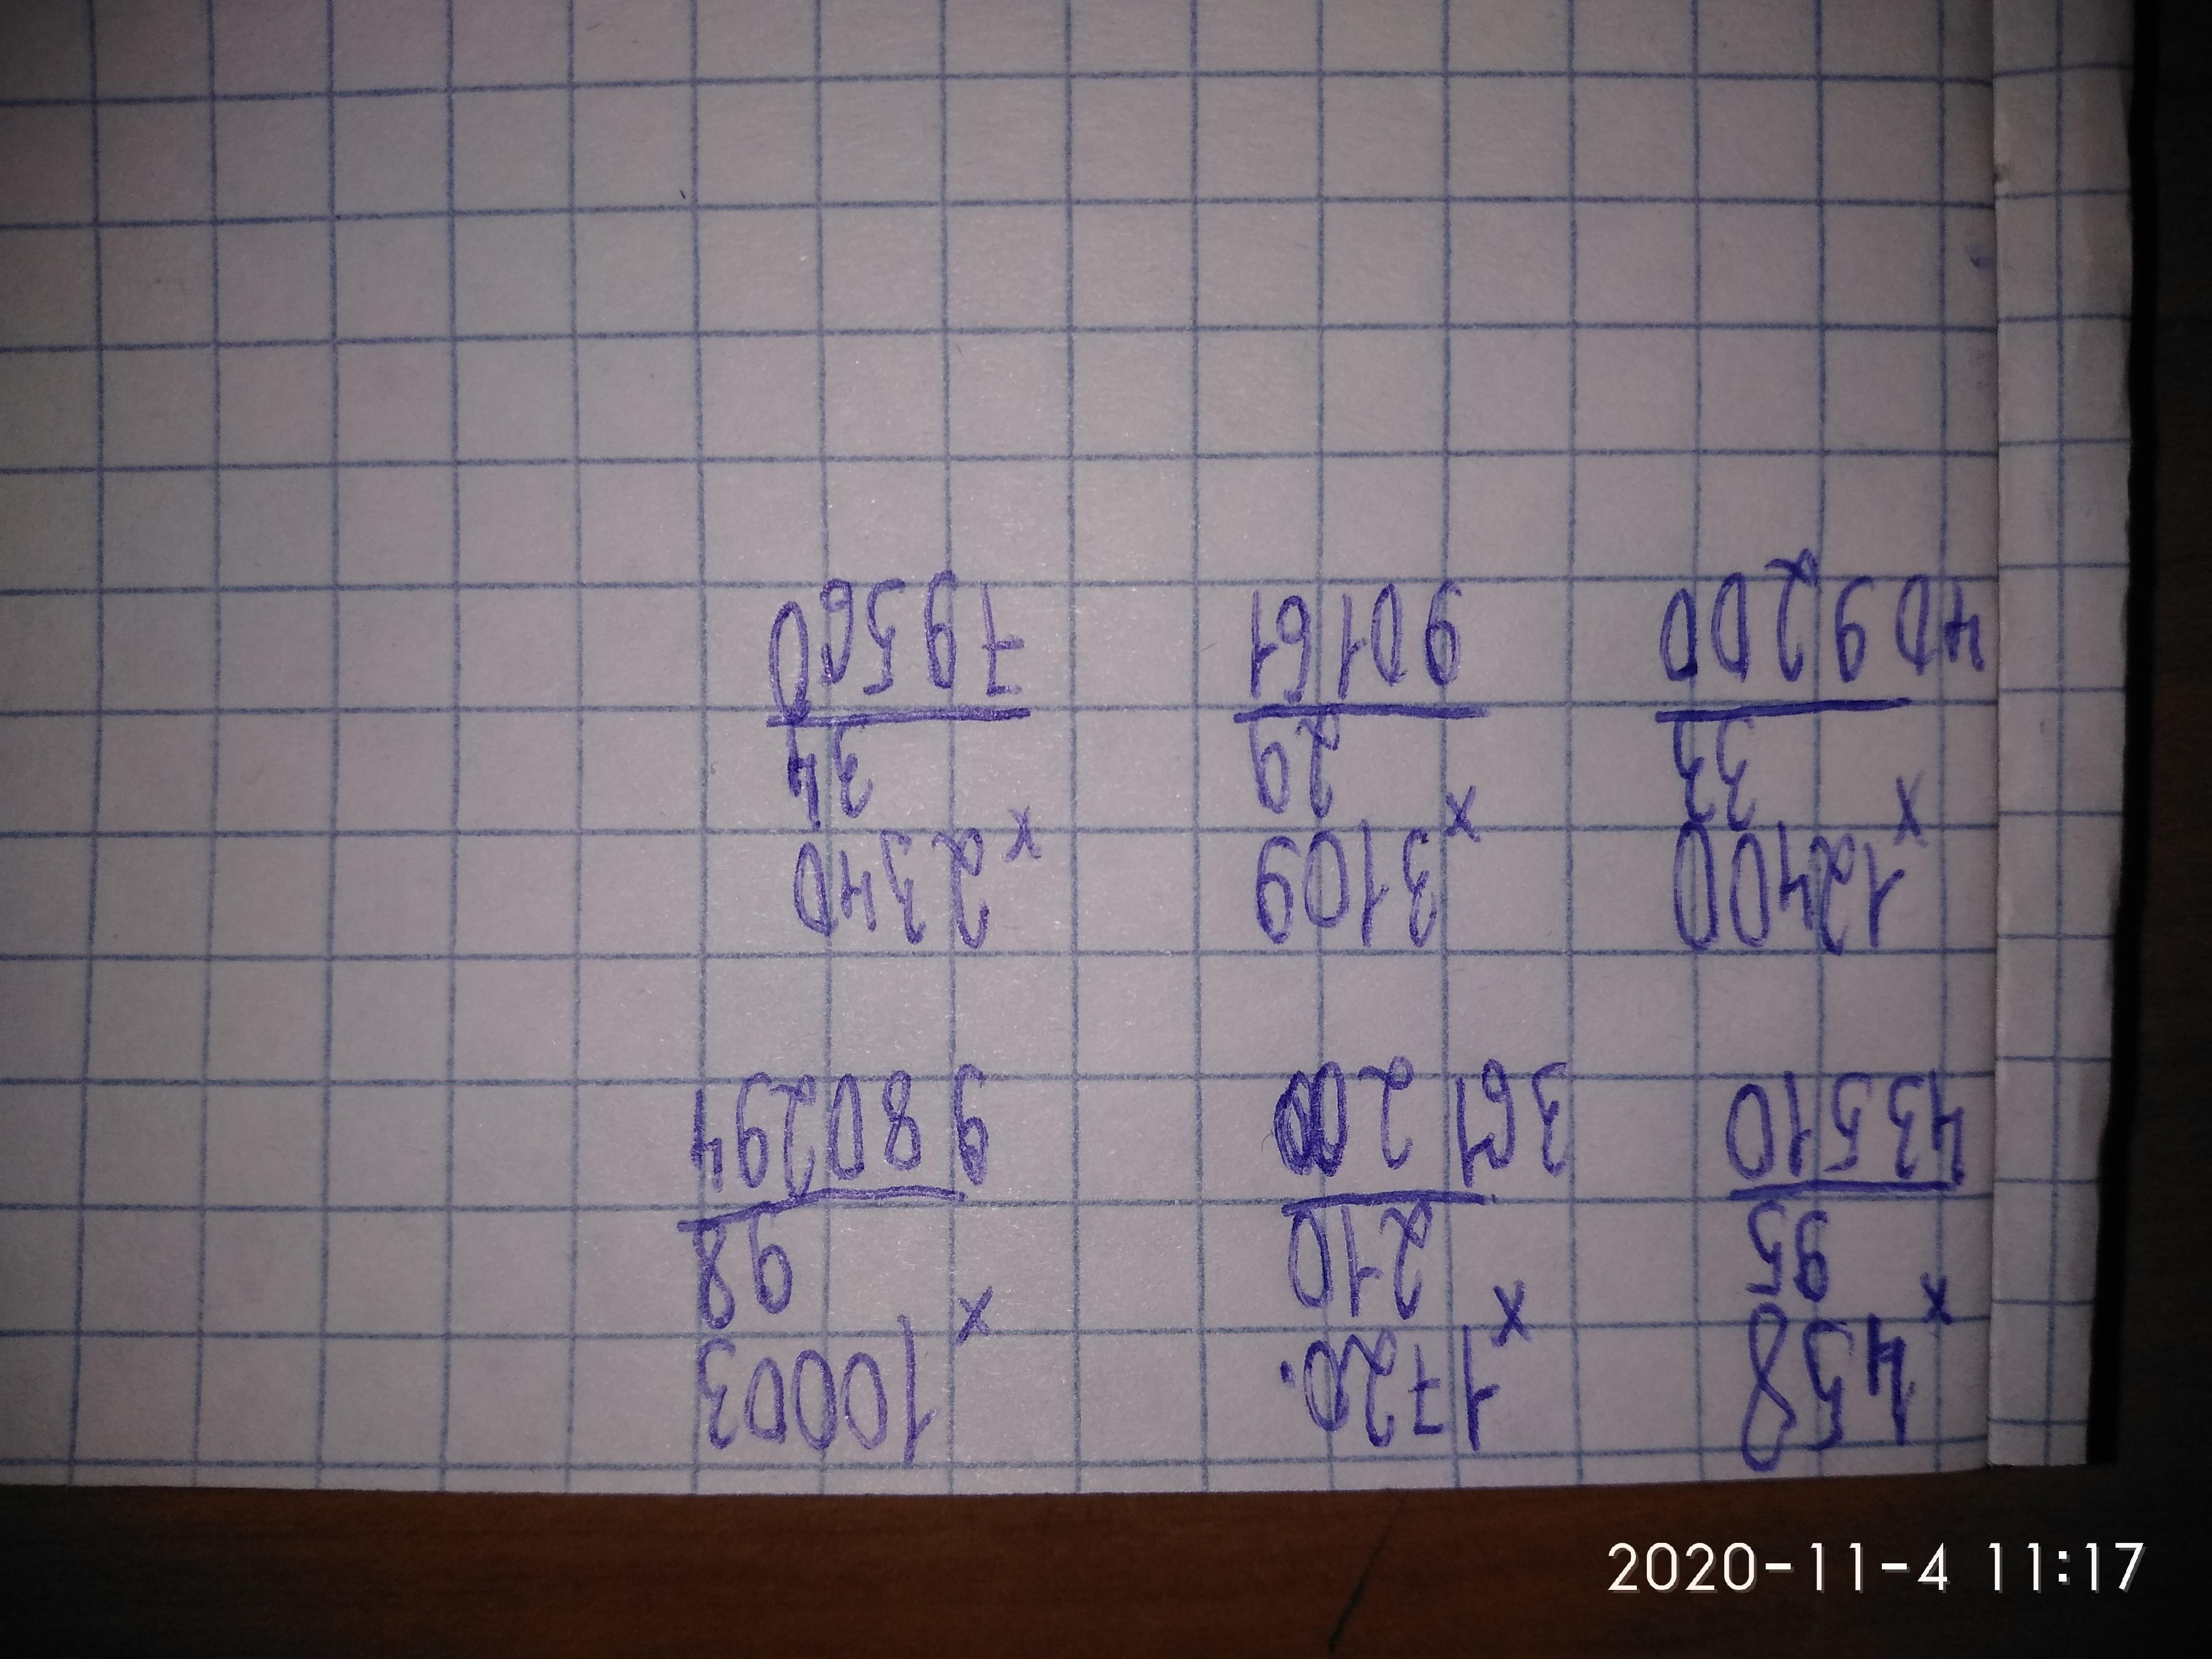 458
×
95
43510
1720.
×
210
361200
10003
×
98
980294
12400
×
33
409200
3109
×
29
90161
2340
×
34
79560
2020-11-4 11:17